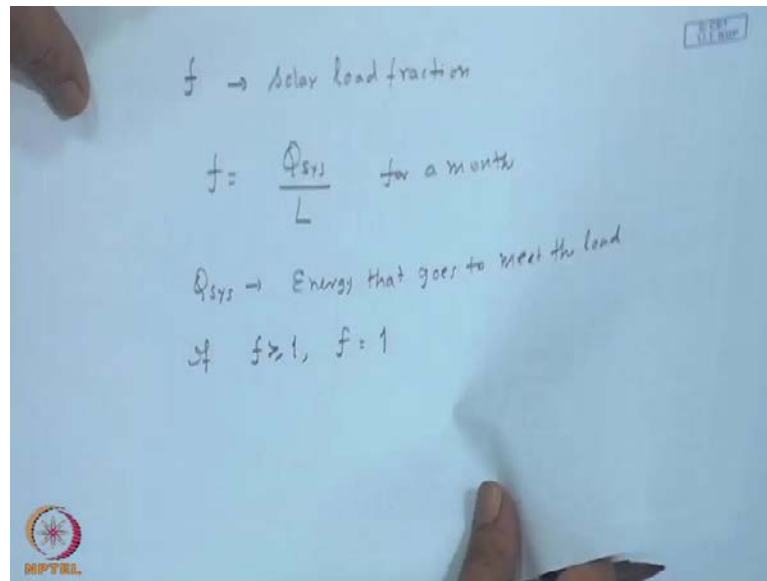 f → Solar load fraction
f = Qsys / L for a month
Qsys → Energy that goes to meet the load
If f ≥ 1, f = 1
NPTEL